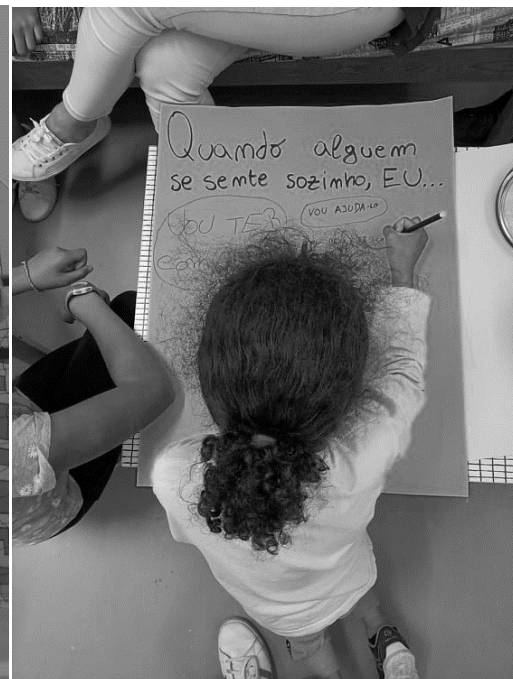 Quando alguem
se sente sozinho, EU...
VOU TER
VOU AJUDA-LO
com